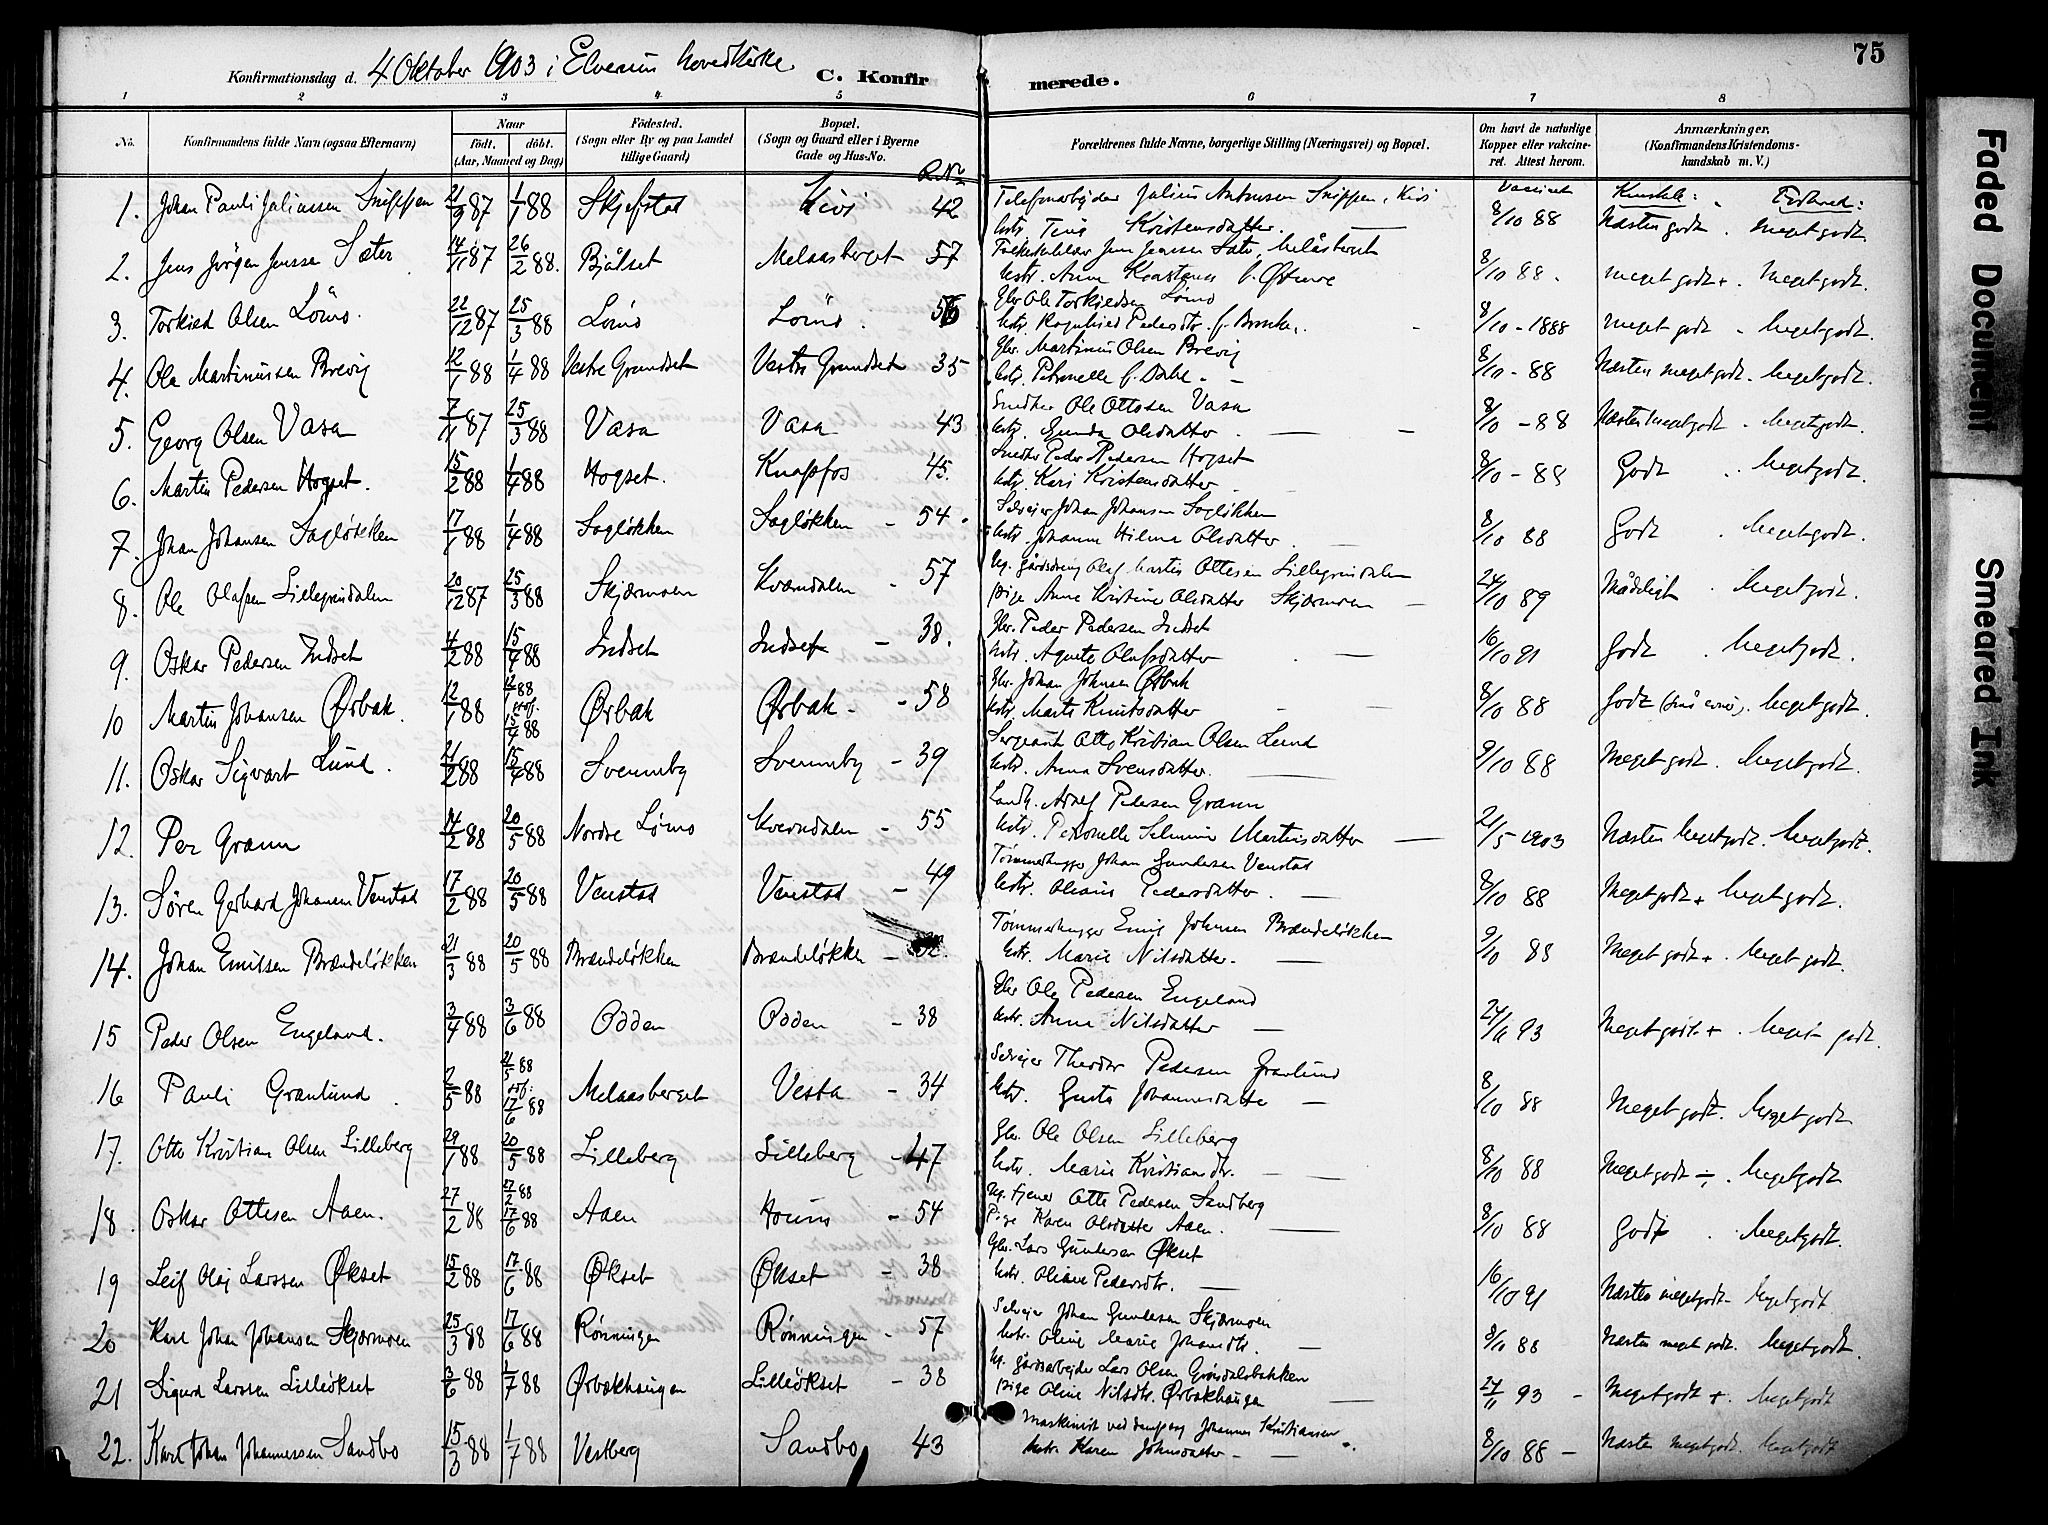 75
Konfirmationsdag d. 4 Oktober 1903 i Elverum hovedkirke
C. Konfirmerede.
1 2 3 4 5 6 7 8
No. Konfirmandens fulde Navn (ogsaa Efternavn) Naar født. døbt. (Aar, Maaned og Dag) Fødested. (Sogn eller By og paa Landet tillige Gaard) Bopæl. (Sogn og Gaard eller i Byerne Gade og Hus-No. Forældrenes fulde Navne, borgerlige Stilling (Næringsvei) og Bopæl. Om havt de naturlige Kopper eller vaccineret. Attest herom. Anmærkninger. (Konfirmandens Kristendomskundskab m. V.)
R.No
1. Johan Pauli Juliussen Snippen 21/9 87 1/1 88 Skjefstad Kivi 42 Telefonarbeider Julius Antonsen Snippen, Kivi
Kristensdatter. 8/10 88 Næsten godt. Meget godt
2. Jens Jörgen Jensen Sæter 14/11 87 26/2 88. Bjölset Melaasberget 57 Jens Jensen Sæter, Melåsberget
hstr. Anna 8/10 88. meget godt +. Meget godt.
3. Torkild Olsen Lömo. 22/12 87 25/3 88 Lömo Lömo. 56 Gbr Ole Torkildsen Lömo
hstr. Ragnhild Pedersdtr. 8/10 - 1888 meget godt - Meget godt.
4. Ole Martinussen Brevig 12/1 88 1/4 88 Vestre Grundset Vestre Grundset 35 Gbr. Martinus Olsen Brevig
hstr. Petronelle f. Dahl - 8/10 - 88 Næsten meget godt. Meget godt.
5. Georg Olsen Vasa 7/11 87 25/3 88 Vasa Vasa 43 Snedker Ole Ottosen Vasa
hstr. Gunda Olsdatter. 8/10 - 88 Næsten meget godt. Meget godt.
6. Martin Pedersen Hogset. 15/2 88 1/4 88 Hogset. Knappfos 45. Snedker Peder Pedersen Hogset
hstr. Kari Kristensdatter 8/10 - 88 Godt. Meget godt.
7. Johan Johansen Sagløkken 17/1 88 1/4 88 Sagløkken Sagløkken - 54. Selveier Johan Johansen Sagløkken
hstr. Johanne Hilma Olsdatter. 8/10 88 Godt. Meget godt.
8. Ole Olafsen Lillegrindalen 20/12 87 25/3 88 Skjærmoen Kværndalen - 57 Ug. gårdsdreng Olaf Martin Ottesen Lillegrindalen
pige Anne Kristine Olsdatter Skjærmoen 24/10 89 Mådeligt. Meget godt.
9. Oskar Pedersen Indset 4/2 88 15/4 88 Indset Indset - 38. Gbr. Peder Pedersen Indset
hstr. Agnete Olafsdatter 16/10 91 Godt. Meget godt.
10 Martin Johansen Ørbæk. 12/1 88 12/1 88 15/4 88 Ørbæk Ørbæk - 58 Gbr. Johan Johnsen Ørbæk
hstr. Marte Knutsdatter 8/10 88 Godt (små evner). Meget godt.
11. Oskar Sigvart Lund. 21/2 88 15/4 88 Svenneby Svenneby - 39 Sergeant Otto Kristian Olsen Lund
hstr. Anna Svensdatter. 9/10 88 Meget godt. Meget godt.
12. Per Grann 14/2 88 20/5 88 Nordre Lømo Kverndalen - 55 Landh. Adolf Pedersen Grann
hstr. Petronelle Martinsdatter 2/5 1903 Næsten Meget godt. Meget godt.
13. Søren Gerhard Johansen Venstad 17/2 88 20/5 88 Venstad Venstad - 49 Tømmerhugger Johan Gundersen Venstad
hstr. Pedersdatter. 8/10 88 Meget godt + Meget godt.
14. Johan Emilsen Brændeløkken 21/3 88 20/5 88 Brændeløkken Brændeløkken - Tømmerhugger Emil Johnsen Brændeløkken
hstr. Marie Nilsdatter. 9/10 88 Meget godt +. Meget godt.
15 Peder Olsen Engeland. 3/4 88 3/6 88 Odden Odden - 38 Gbr Ole Pedersen Engeland
hstr. Anne Nilsdatter 24/11 93 Meget godt +. Meget godt.
16 Pauli Granlund. 2/5 88 21/5 88 17/6 88 Melaasberget Vesta - 34 Selveier Theodor Pedersen Granlund
hstr. Gusta Johannesdatter 8/10 88 Meget godt. Meget godt
17. Otto Kristian Olsen Lilleberg 29/1 88 20/5 88 Lilleberg Lilleberg - 47 Gbr. Ole Olsen Lilleberg
hstr. Marie Kristiansdtr. 8/10 88 Meget godt ÷. Meget godt
18. Oskar Ottesen Aaen. 27/2 88 27/2 88 17/6 88 Aaen - 54 Ug. tjener Otto Pedersen Sandberg
Pige Karen Olsdatter Aaen. 8/10 88 Godt. Meget godt.
19 Leif Olaj Larssen Økset 15/2 88 17/6 88 Økset Økset - 38 Gbr. Lars Gundersen Økset
hstr. Oliane Pedersdtr. 16/10 91 Næsten meget godt - Meget godt
20 Karl Johan Johansen Skjærmoen 25/3 88 17/6 88 Rønningen Rønningen - 57 Selveier Johan Gundersen Skjærmoen
hstr. Oline Marie Johansdtr. 8/10 88 Næsten meget godt. Meget godt.
21 Sigurd Larssen Lilleökset 3/6 88 1/7 88 Ørbækhaugen Lilleökset - 38 Ug. gårdsarbeider Lars Olsen Grøndalsbakken
pige Oline Nilsdtr. Ørbækhaugen 24/11 93 - Meget godt +. Meget godt
22. Karl Johan Johannessen Sandbo 15/3 88 1/7 88 Vestberg Sandbo 43 Maskinist ved dampsag Johannes Kristiansen
hstr. Karen Johnsdatter - 8/10 88 - Næsten meget godt. Meget godt
Faded Document
Smeared Ink